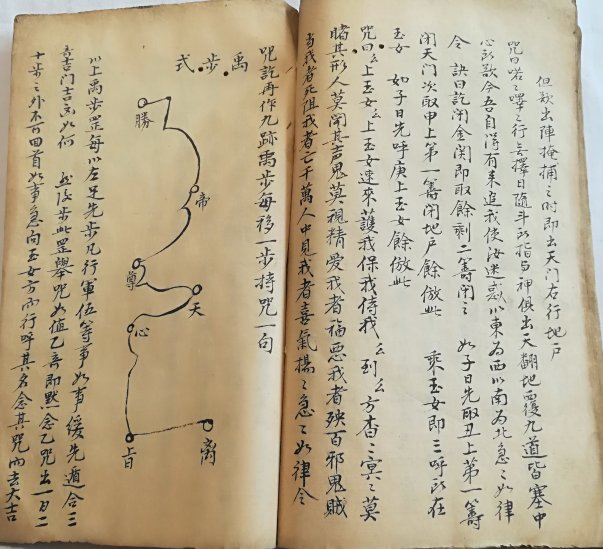 但欲出陣掩捕之時即出天門右行地戶
咒曰喏之嘩之行無擇日隨斗所指与神俱出天翻地覆九道皆塞中
心所欲令吾自得有来追我使汝迷惑以東為西以南為北急之如律
令 訣曰訖閉金関即取餘剩二籌閉之 如子日先取丑上第一籌
閉天門次取申上第一籌閉地戶餘倣此 乘玉女即三呼所在
玉女 如子日先呼庚上玉女餘倣此
咒曰么上玉女么上玉女速來護我保我侍我 到么方杳之冥之莫
睹其形人莫聞其声鬼莫視精愛我者福惡我者殃百邪鬼賊
当我者死阻我者亡千萬人中見我者喜氣揚之急之如律令
咒訖再作九跡禹步每移一步持咒一句
禹步式
勝
帝
尊
天
心
离
以上禹步罡每以左足先步凡行軍伍等事如事緩先遁合三
吾吉门吉凶如何 然後步此罡舉咒如值乙竒即黙念乙咒出一百二
十步之外不可回首如事急向玉女方而行呼其名念其咒而去大吉